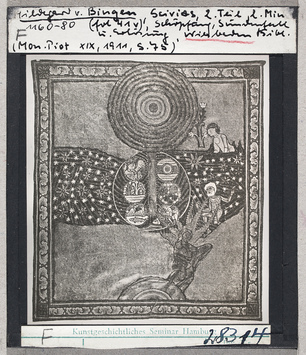 Hildegard v. Bingen Scivias, 2. Teil, 2. Min
1160-80 (fol 41v), Schöpfung, Sündenfall
F u. Erlösung Wiesbaden Bibl.
(Mon. Piot XIX, 1911, S. 75)
Kunstgeschichtliches Seminar Hamburg
F 28314